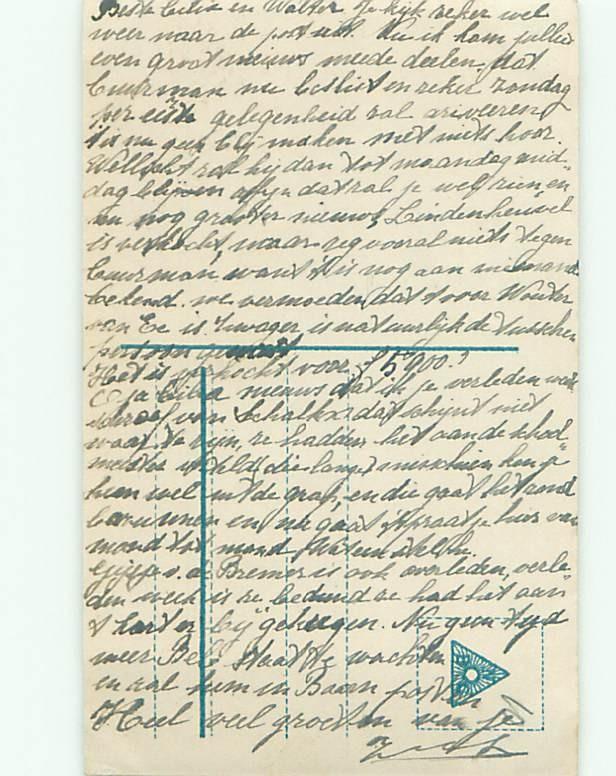 Beste Cilia en Walter Je kijk zeker wel
weer naar de post uit. Nu ik kom jullie
even groot nieuws meede deelen dat
buurman nu beslist en zeker Zondag
per eiste gelegenheid zal ariveeren
t is nu geen blij maken met niets hoor.
Wellicht zal hij dan tot maandag mid-
dag blijven afijn dat zal je wel zien, en
nu nog grooter nieuws, Lindenheuvel
is verkocht, maar zeg vooral niets tegen
buurman, want t is nog aan niemand
bekend. we vermoeden dat t voor Wouter
van Ee is. Zwager is natuurlijk de tusschen
persoon geweest
Het is verkocht voor f 5900.?
O ja Cilia nieuws dat ik je verleden week
schreef van Schalkx dat schijnt niet
waar te zijn, ze hadden het aan de school
meester verteld, die lange misschien ken je
hem wel uit de gra, en die gaat het rond
en nu gaat t praatje hier van
mond tot mond
v. d. Bremer is ook overleden, verle-
den week is ze ze had het aan
t hart er bij gekregen. Nu geen tyd
meer Bets staat te wachten
en zal hem in Baarn posten
Heel veel groeten van je